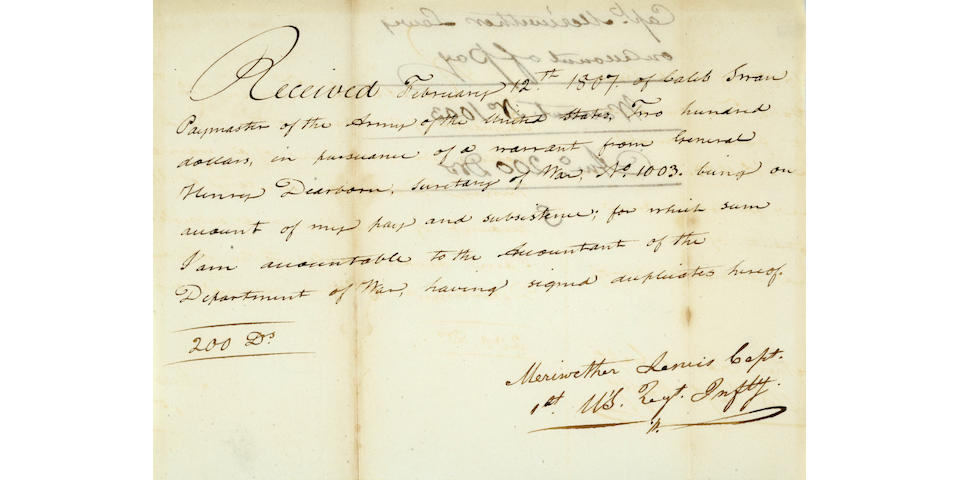 Received February 12th 1807 of Caleb Swan
Paymaster of the Army of the United States, Two hundred
dollars, in pursuance of a warrant from General
Henry Dearborn, Secretary of War, No. 1003. being on
account of my pay and subsistence; for which sum
I am accountable to the Accountant of the
Department of War, having signed duplicates hereof.
200 Ds
Meriwether Lewis Capt.
1st US. Regt. Infty.
Capt. Meriwether Lewis
on account of Pay
No 1003
200 Dls